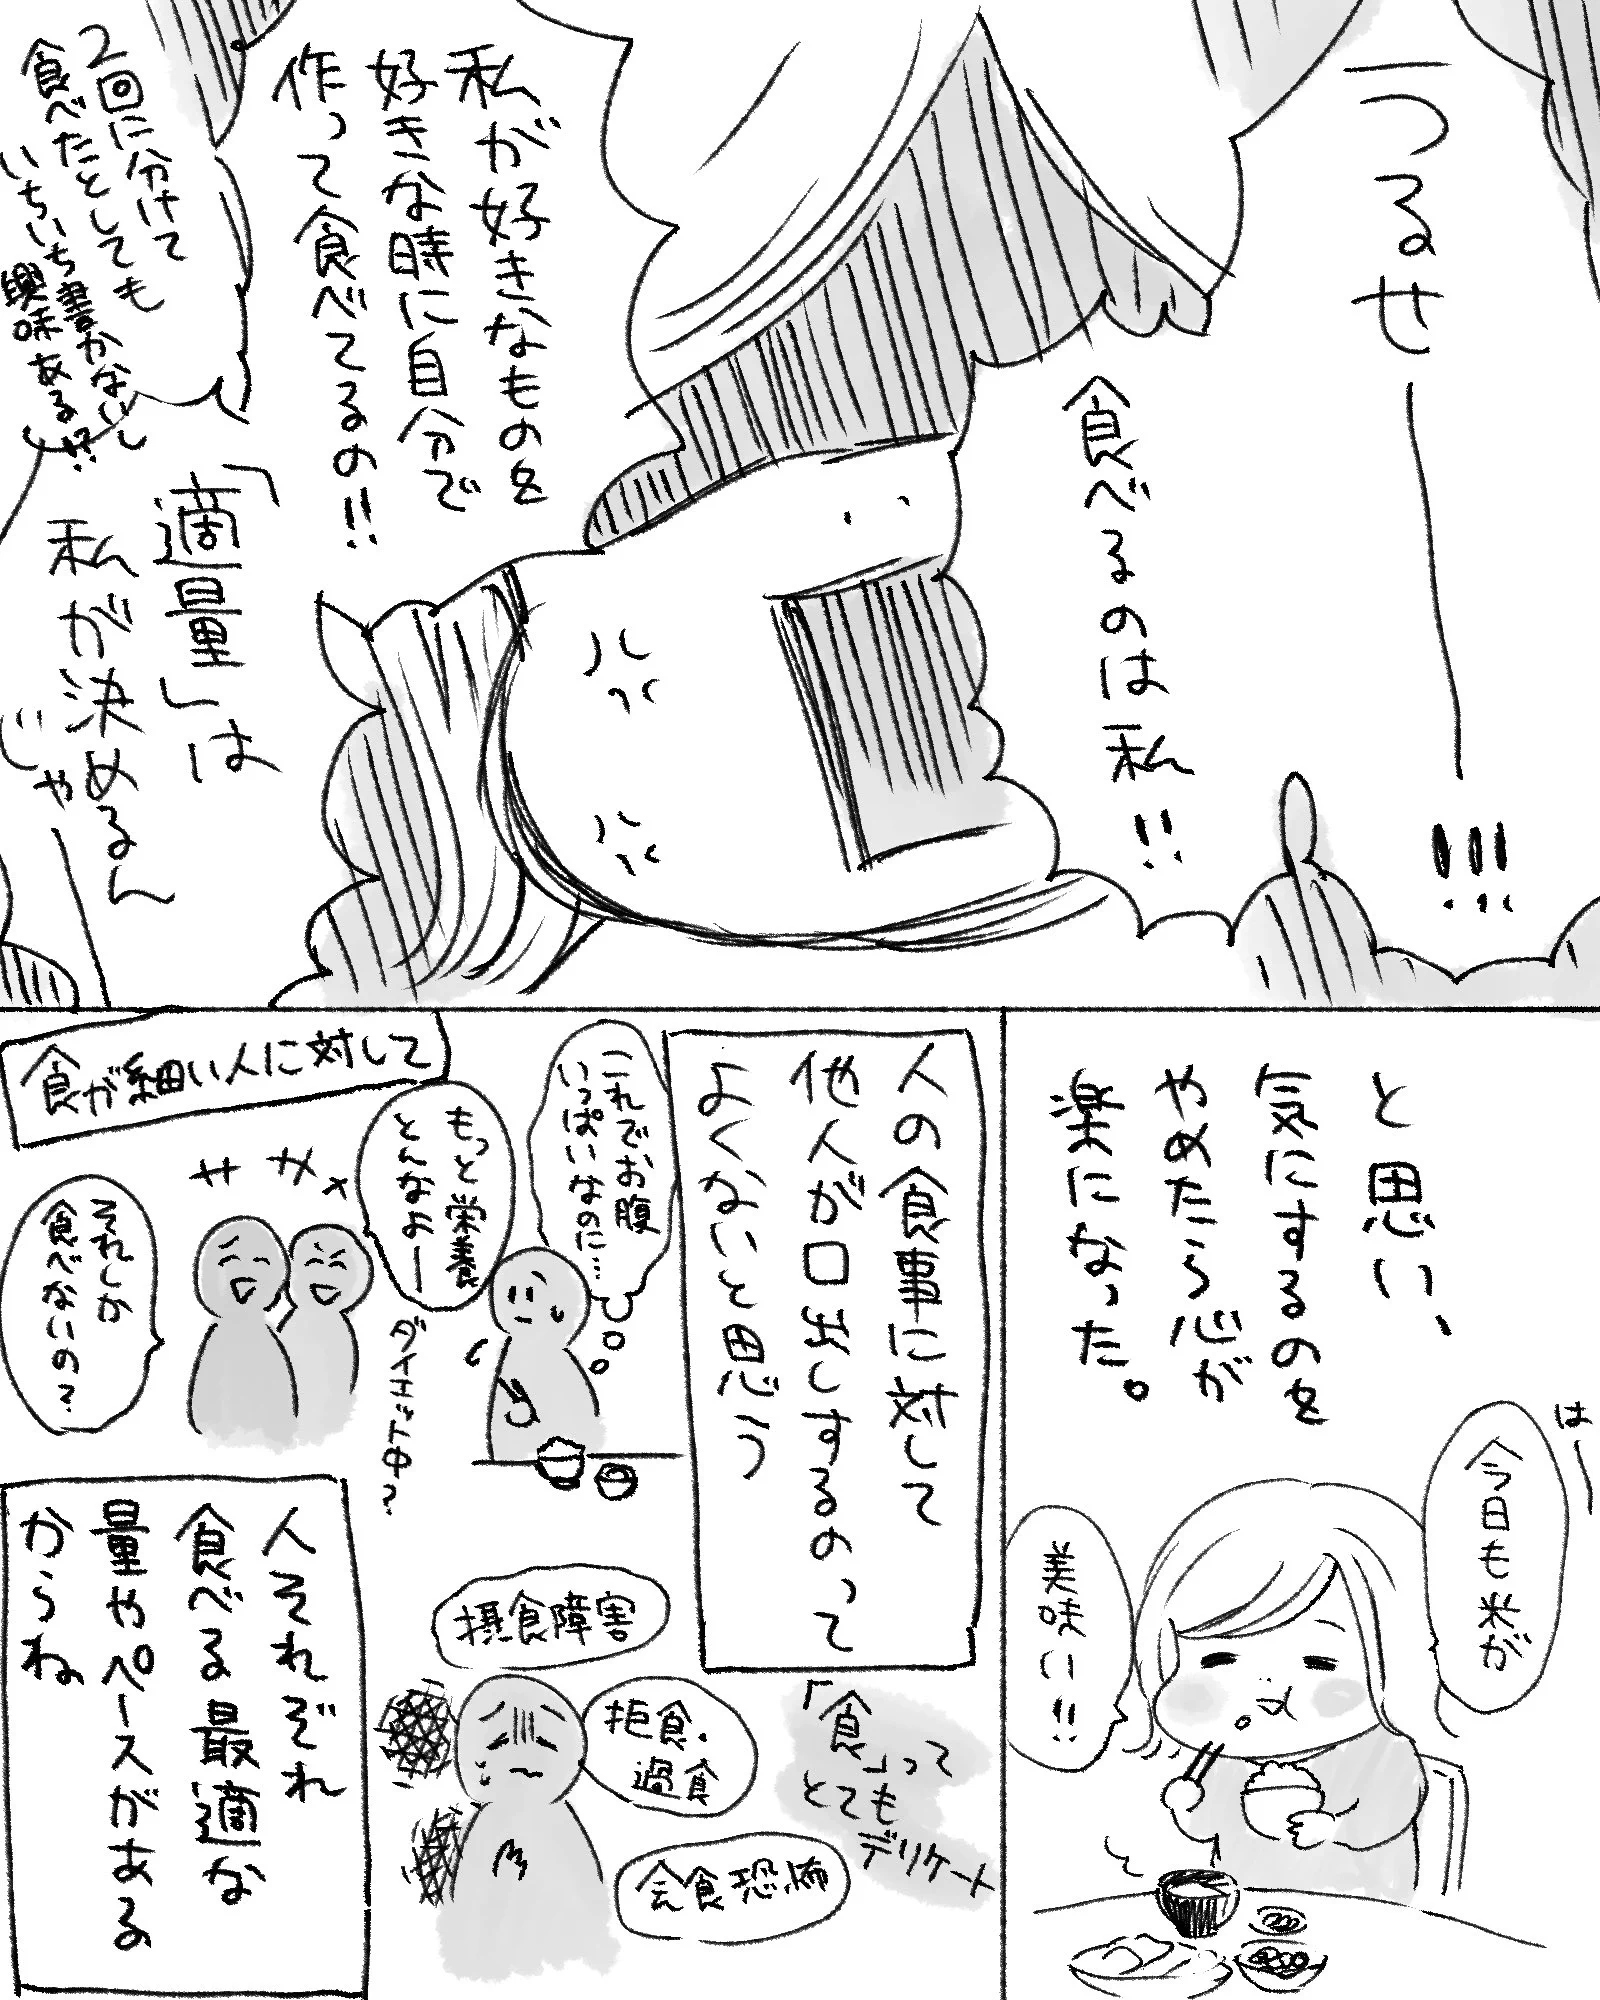 うるせ――――!!!
食べるのは私!!
私が好きなものを
好きな時に自分で
作って食べてるの!!
2回に分けて
食べたとしても
いちいち書かないし
興味ある!?
「適量」は
私が決めるん
じゃ――
と思い、
気にするのを
やめたら心が
楽になった。
はー
今日も米が
美味い!!
人の食事に対して
他人が口出しするのって
よくないと思う
食が細い人に対して
これでお腹
いっぱいなのに…
もっと栄養
とんなよー
ダイエット中?
それしか
食べないの?
「食」って
とても
デリケート
摂食障害
拒食・
過食
会食恐怖
人それぞれ
食べる最適な
量やペースがある
からね